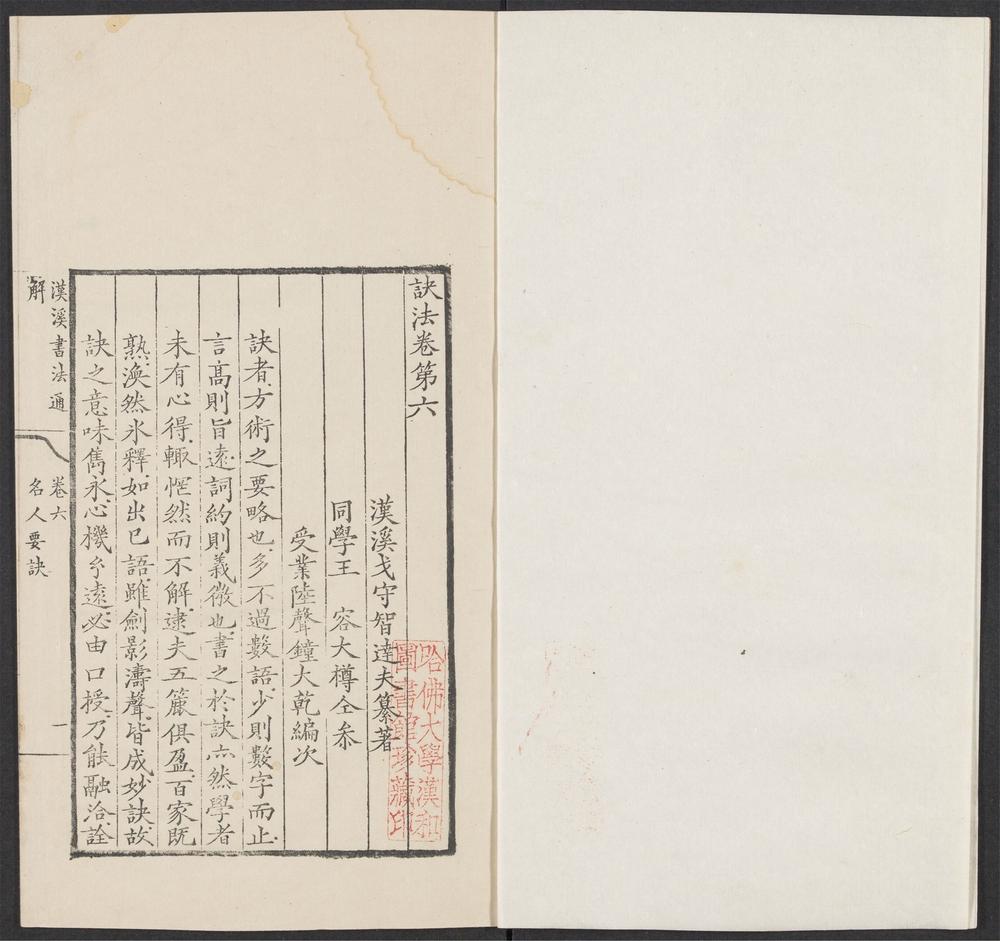 訣法卷第六
漢溪戈守智達夫纂著
同學王　容大樽仝叅
受業陸聲鐘大乾編次
訣者方術之要略也多不過數語少則數字而止
言髙則旨遠詞約則義微也書之於訣亦然學者
未有心得輙惘然而不解逮夫五簏俱盈百家既
熟渙然氷釋如出巳語雖劍影濤聲皆成妙訣故
訣之意味雋永心機兮遠必由口授乃能融洽詮
漢溪書法通
解
卷六
名人要訣
一
哈佛大學漢和
圖書館珍藏印